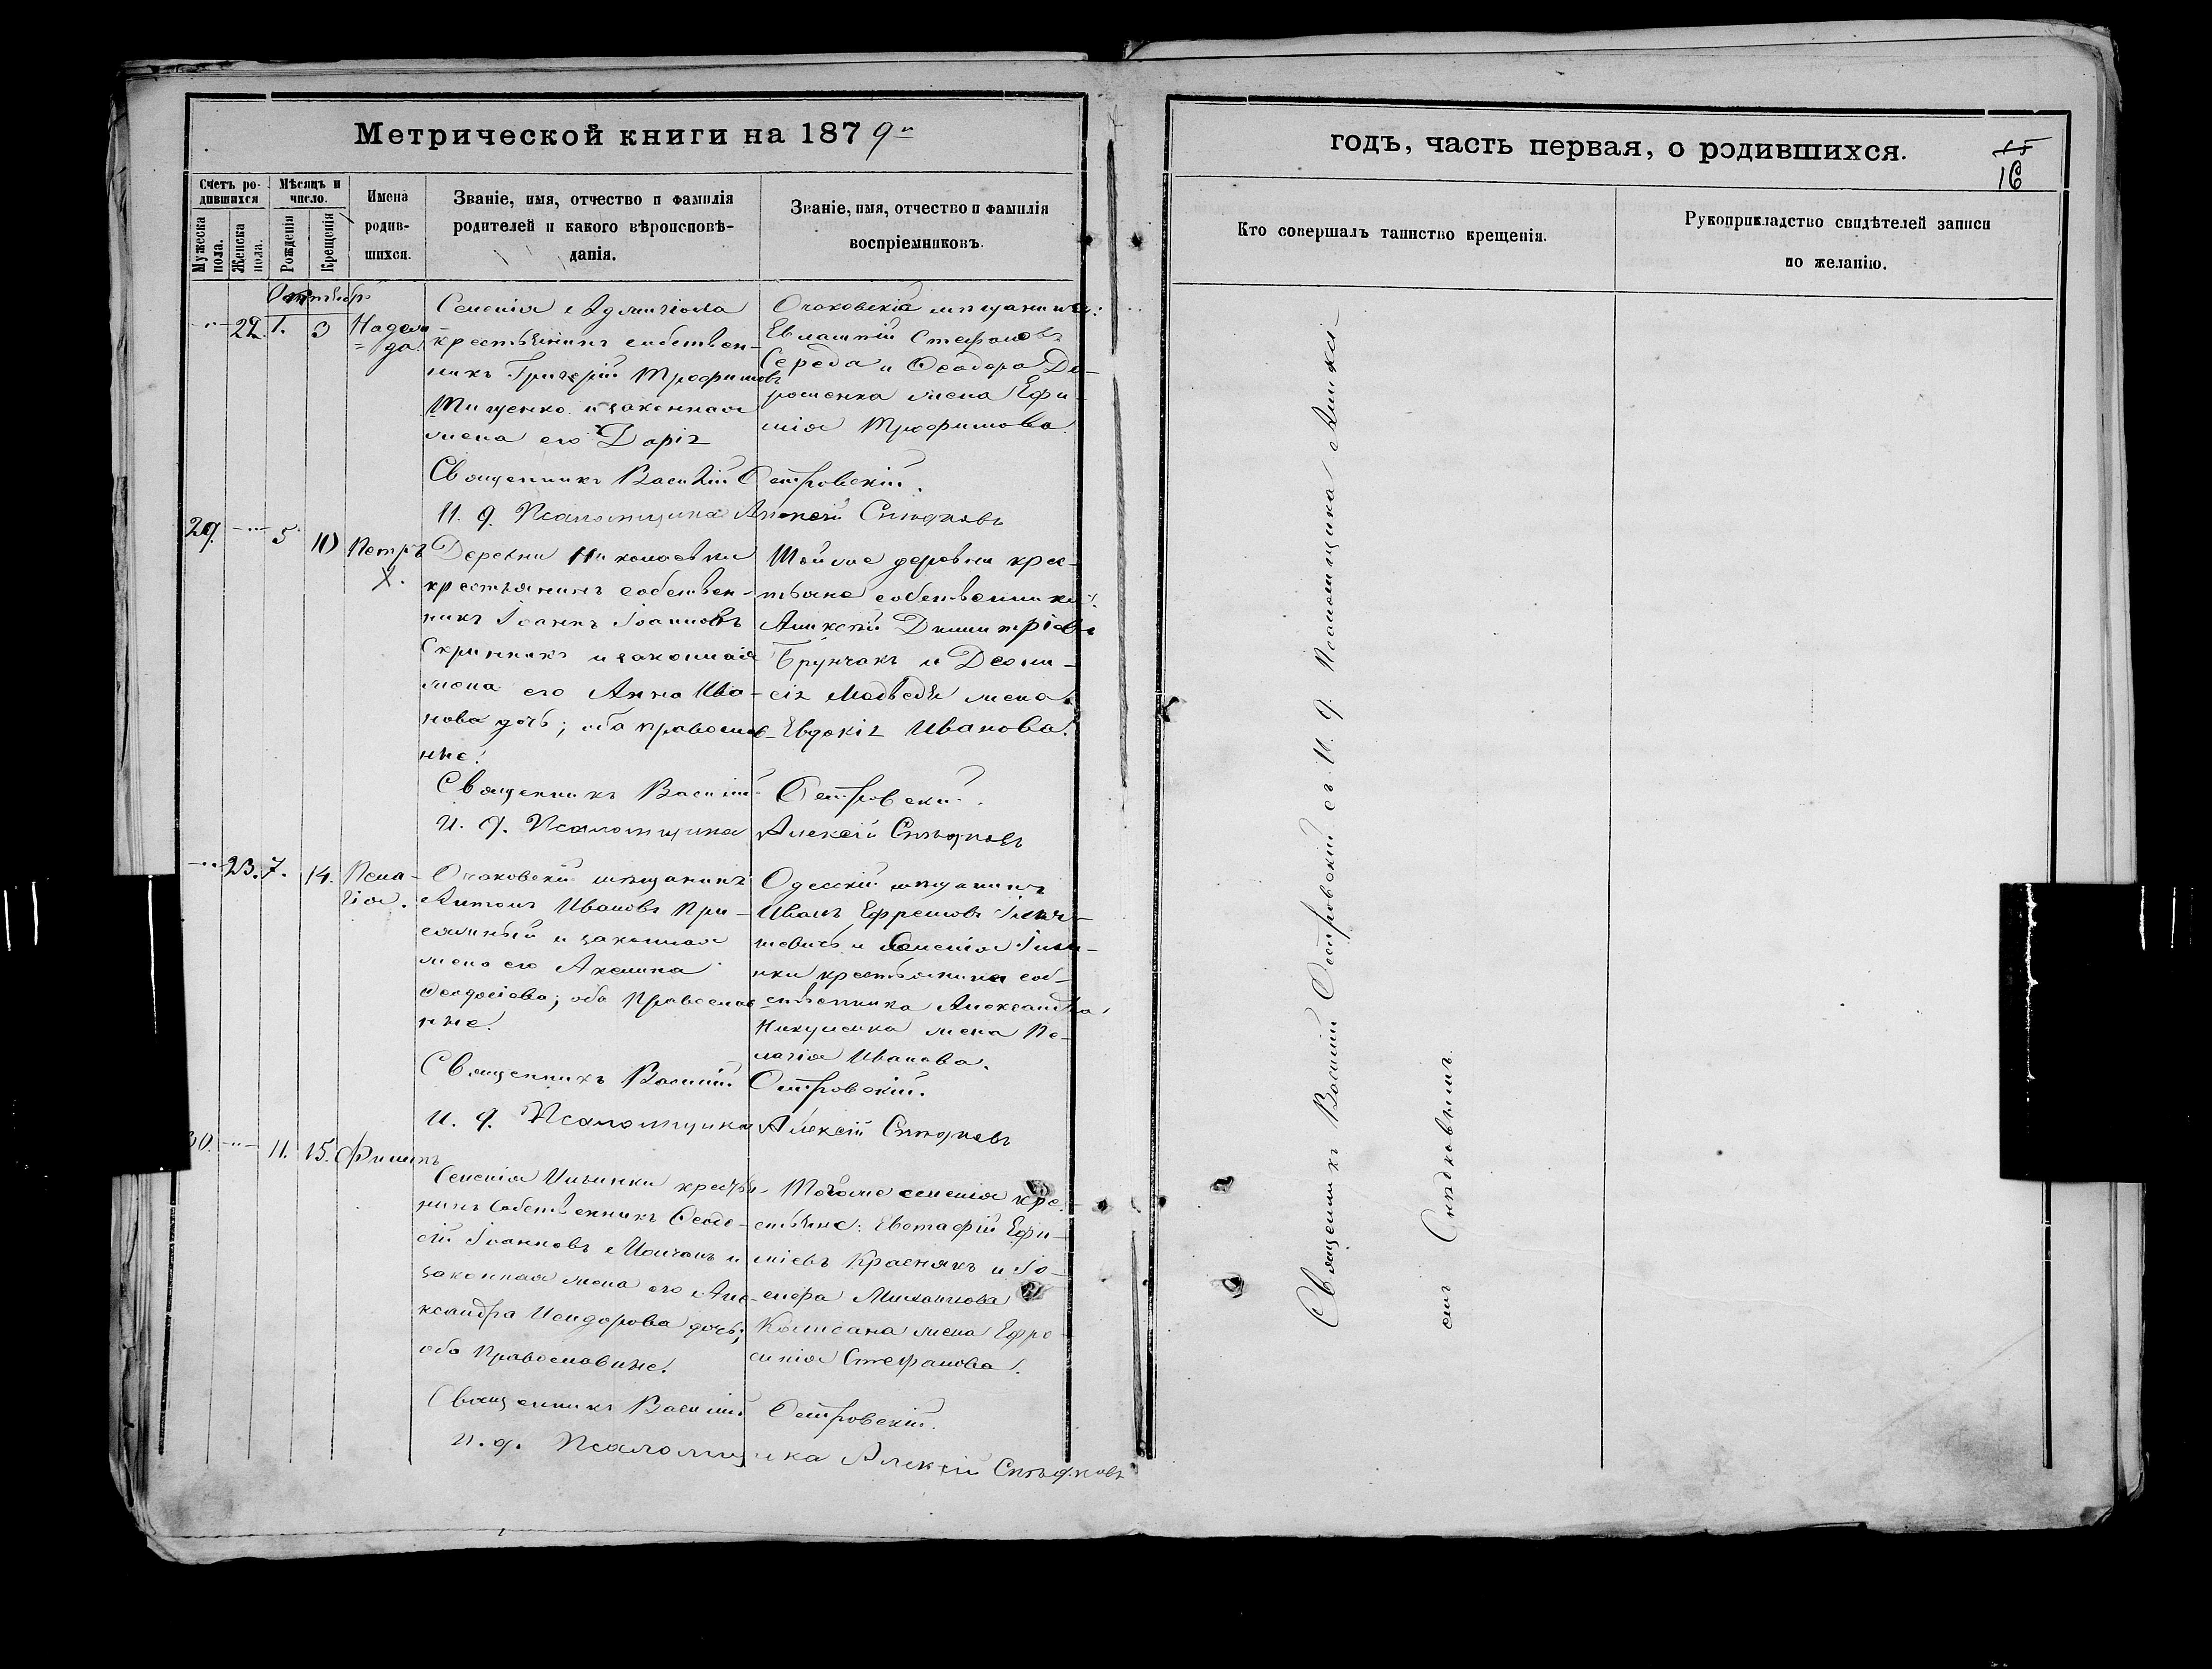 Метрической книги на 1879й
Счетъ ро-
дившихся
Мѣсяцъ и
число.
Мужеска
пола.
Женска
пола.
Рожденія
Крещенія
Имена
родив-
шихся.
Званіе, имя, отчество и фамилія
родителей и какого вѣроисповѣ-
данія.
Званіе, имя, отчество и фамилія
воспріемниковъ.
22. 1. 3
крестьянинъ собствен-
никъ Григорій Трофимовъ
Тищенко и законная
жена его Дарія
Очаковскіе мѣщанина:
Евлампій Стефановъ
Середа и Ѳеодора До-
рошенка жена Ефи-
мія Трофимова
Священникъ Василій Островскій.
И. д. Псаломщика Алексѣй
29. 5 10 Петръ
Х.
Деревни Николаевки
крестьянинъ собствен-
никъ Іоаннъ Іоанновъ
Скринникъ и законная
жена его Анна Ива-
нова дочь; оба православ-
ные.
Той же деревни крес-
тьяне собственники:
Алексѣй Димитріевъ
и
Медведя жена
Евдокія Иванова.
Священникъ Василій Островскій.
И. д. Псаломщика Алексѣй
23. 7. 14. Пела-
гія.
Очаковскій мѣщанинъ
Антонъ Ивановъ При-
и законная
жена его Акилина
Ѳеодосіева; оба Православ-
ные.
Одесскій мѣщанинъ
Иванъ Ефремовъ
и селенія Ильи-
нки крестьянина соб-
ственника Александра
жена Пе-
лагія Иванова.
Священникъ Василій Островскій.
И. д. Псаломщика Алексѣй
30. 11. 15. Филипъ
Селенія Ильинки кресть-
нинъ Собственникъ Ѳеодо-
сій Іоанновъ Молчанъ и
законная жена его Але-
ксандра Исидорова дочь;
оба Православные.
Того же селенія кре-
стьяне: Евстафій Ефи-
міевъ Краснякъ и Іо-
сифа Михайлова
жена Ефро-
синія Стефанова.
Священникъ Василій Островскій.
И. д. Псаломщика Алексѣй
годъ, часть первая, о родившихся.
15
16
Кто совершалъ таинство крещенія.
Рукоприкладство свидѣтелей записи
по желанію.
Священникъ Василій Островскій съ И. д. Псаломщика Алексѣ-
емъ